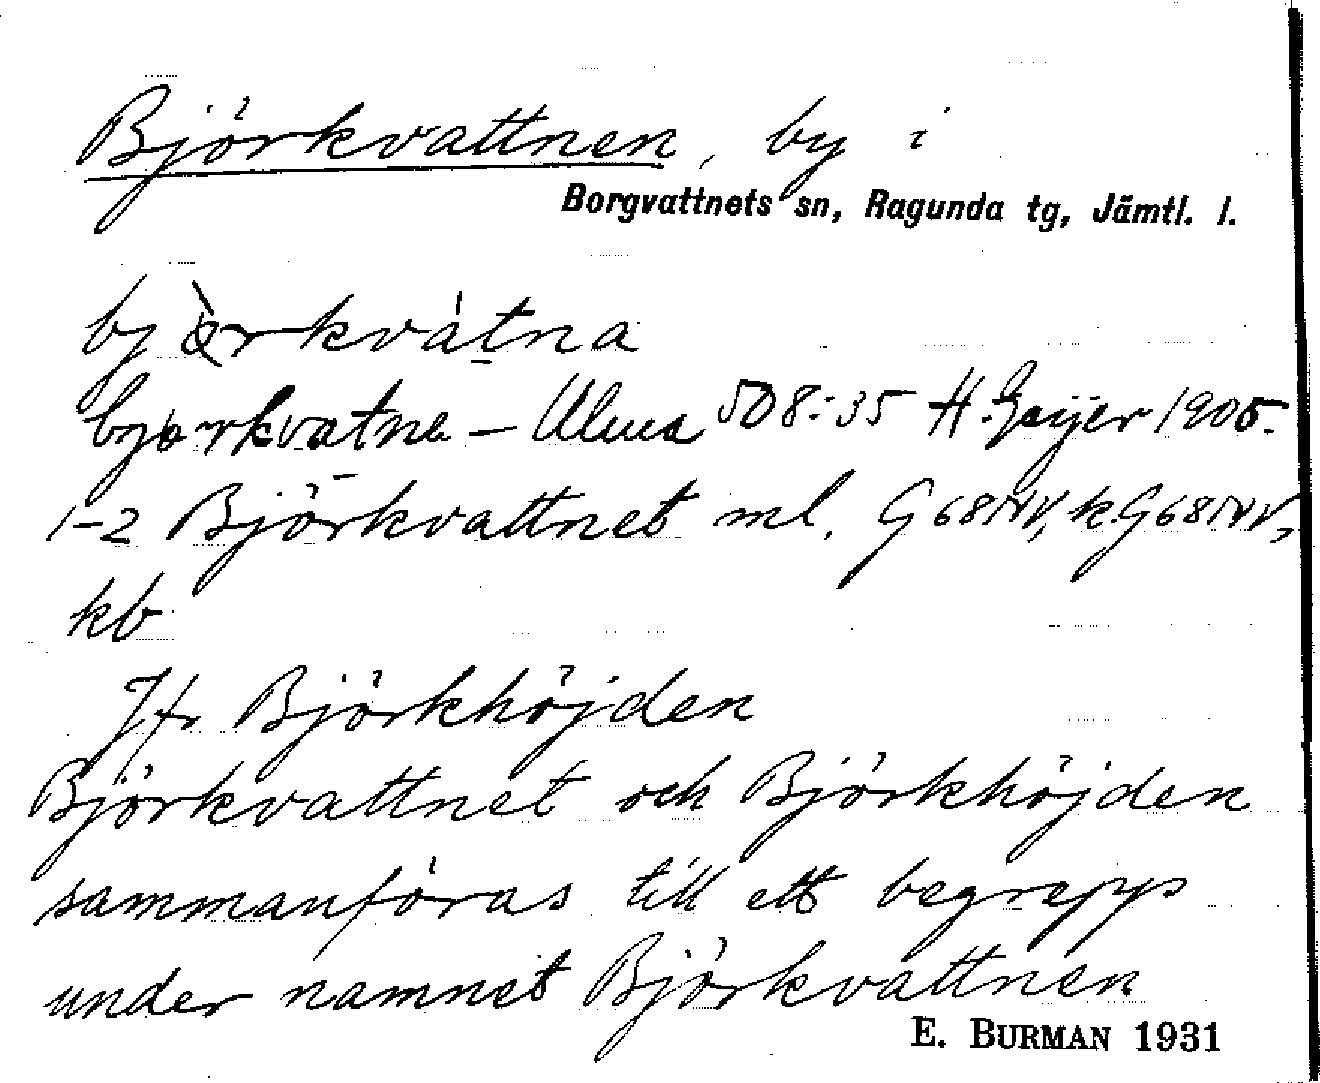 Björkvattnen, by i
Borgvattnets sn, Ragunda tg, Jämtl. l.
bjòrkvátna
bjorkvatna – Uluca 508:35 H. Geijer 1905.
1-2 Björkvattnet ml. G68NV, k.G68NV,
kb
Jfr Björkhöjden
Björkvattnet och Björkhöjden
sammanföras till ett begrepp
under namnet Björkvattnen
E. BURMAN 1931